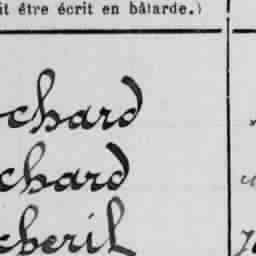 it être écrit en bâtarde.)
chard
chard
cheril